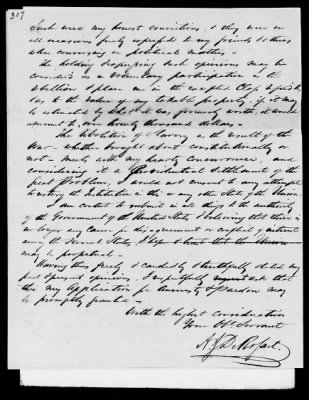 307
Such were my honest convictions, & they were on
all occasions freely expressed to my friends & others
when conversing on political matters —
The holding & expressing such opinions may be
considered as a voluntary participation in the
rebellion & place me in the excepted Class
as to the value of my taxable property, if it may
be estimated by what it was formerly worth, it would
amount to one hundred thousand dollars —
The abolition of Slavery as the result of the
War — whether brought about constitutionally or
not — meets with my hearty concurrence, and
considering it a Providential settlement of the
great Problem, I would not consent to any attempt
to restore the Institution in this or any other State of the Union.
I am content to submit in all things to the authority
of the Government of the United States & believing that there is
no longer any cause for disagreement or conflict of interest
among the several States, I hope & trust that the Union
may be perpetual —
Having thus freely & candidly & truthfully stated my
past & present opinions, I respectfully ask that
this my Application for Amnesty & Pardon may
be promptly granted —
With the highest consideration
Your Obt Servant